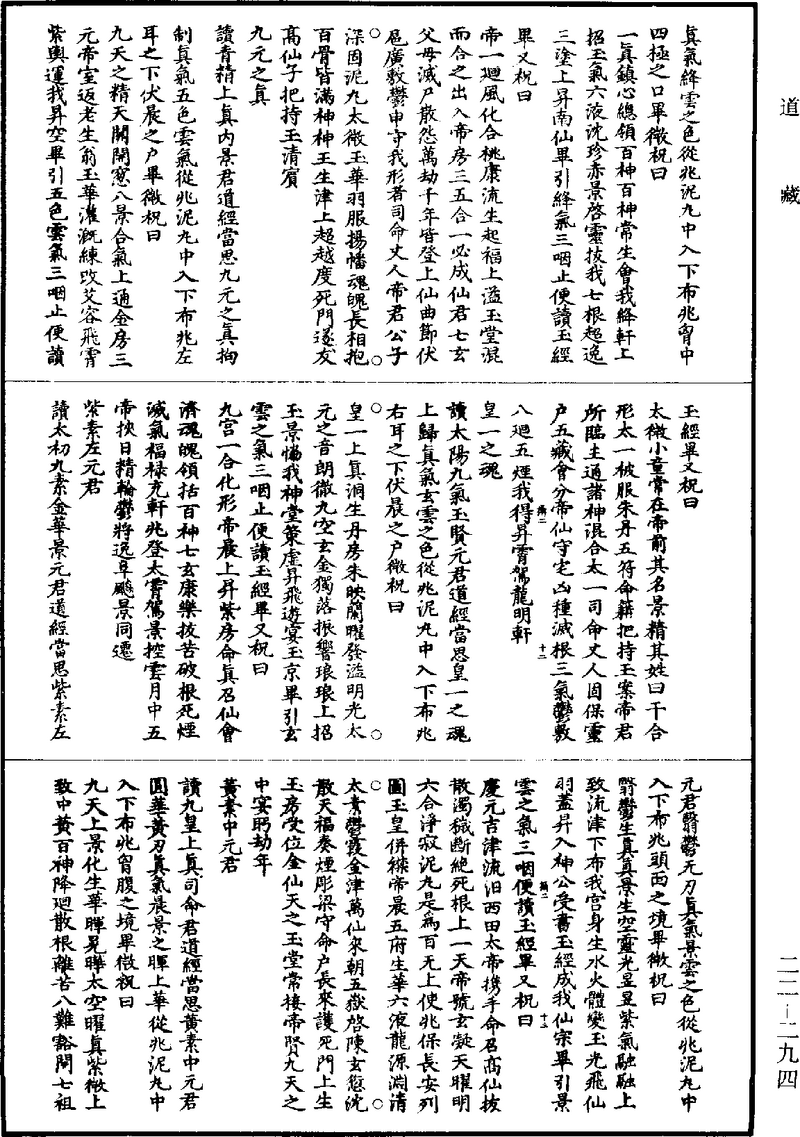 道藏
二二—二九四
真氣絳雲之色從兆泥丸中入下布兆胷中
四極之口畢微祝曰
一真鎮心總領百神百神常生會我絳軒上
招玉氣六液沈珍赤景啓靈拔我七根超逸
三塗上昇南仙畢引絳氣三咽止便讀玉經
畢又祝曰
帝一迴風化合桃康流生起福上溢玉堂混
而合之出入帝房三五合一必成仙君七玄
父母滅尸散怨萬劫千年皆登上仙曲節伏
扈廣敷鬱申守我形者司命丈人帝君公子
深固泥丸太微玉華羽服揚幡魂魄長相抱
百骨皆滿神神王生津上超越度死門遂友
高仙子把持玉清賓
九元之真
讀青精上真内景君道經當思九元之真拘
制真氣五色雲氣從兆泥丸中入下布兆左
耳之下伏晨之户畢微祝曰
九天之精天關開窓八景合氣上通金房三
元帝室返老生翁玉華灌溉練改艾容飛霄
紫輿運我昇空畢引五色雲氣三咽止便讀
玉經畢又祝曰
太微小童常在帝前其名景精其姓曰干合
形太一被服朱丹五符命籍把持玉案帝君
所臨主通諸神混合太一司命丈人固保靈
户五藏會分帝仙守宅凶種滅根三氣鬱敷
八迴五煙我得昇霄駕龍明軒
皇一之魂
讀太陽九氣玉賢元君道經當思皇一之魂
上歸真氣玄雲之色從兆泥丸中入下布兆
右耳之下伏晨之户微祝曰
皇一上真洞生丹房朱映蘭曜發溢明光太
元之音朗徹九空玄金獨落振響琅琅上招
玉景惱我神堂策虚昇飛遊宴玉京畢引玄
雲之氣三咽止便讀玉經畢又祝曰
九宫一合化形帝晨上昇紫房命真召仙會
濟魂魄領括百神七玄康樂拔苦破根死煙
滅氣福禄充軒兆登太霄駕景控雲月中五
帝挾日精輪鬱將逸阜飈景同遷
紫素左元君
讀太初九素金華景元君道經當思紫素左
元君翳鬱无刃真氣景雲之色從兆泥丸中
入下布兆頭面之境畢微祝曰
翳鬱生真真景生空靈光昱昱紫氣融融上
致流津下布我宫身生水火體變玉光飛仙
羽蓋昇入神公受書玉經成我仙宗畢引景
雲之氣三咽便讀玉經畢又祝曰
慶元吉津流汩西田太帝携手命召高仙拔
散濁穢斷絶死根上一天帝號玄凝天曜明
六合淨寂泥丸是爲百无上使兆保長安列
圖玉皇併縧帝晨五府生華六液龍源淵清
太素鬱霞金津萬仙來朝五嶽啓陳玄愆沈
散天福奏煙彫梁守命户長來護死門上生
玉房受位金仙天之玉堂常接帝賢九天之
中宴眄劫年
黄素中元君
讀九皇上真司命君道經當思黄素中元君
圓華黄刃真氣晨景之暉上華從兆泥丸中
入下布兆胷腹之境畢微祝曰
九天上景化生華暉晃曄太空曜真紫微上
致中黄百神降迴散根離苦八難豁開七祖